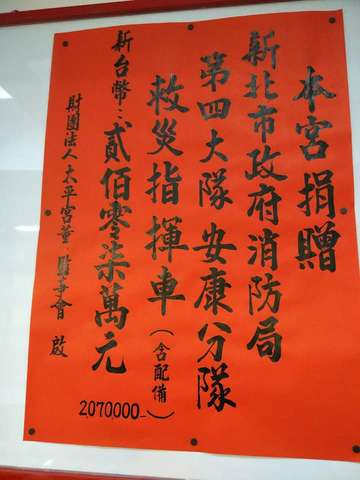 本宮捐贈
新北市政府消防局
第四大隊安康分隊
救災指揮車(含配備)
新台幣:貳佰零柒萬元
2,070,000-
財團法人太平宮董.監事會 啟